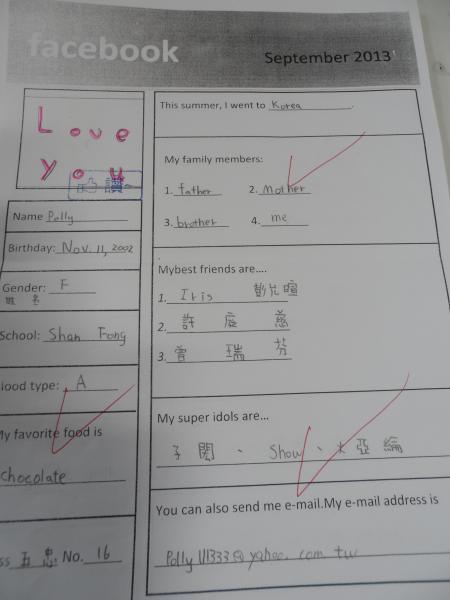 facebook
September 2013
Love
you
閱讀
Name Polly
Birthday: Nov. 11, 2002
Gender: F
姓 名
School: Shan Fong
lood type: A
My favorite food is
chocolate
ss 五 忠 No. 16
This summer, I went to Korea.
My family members:
1. father 2. Mother
3. brother 4. me
Mybest friends are....
1. Iris
2. 許 庭 慈
3. 曾 瑞 芬
My super idols are...
子 閎 、 Show 、 大 亞 綸
You can also send me e-mail.My e-mail address is